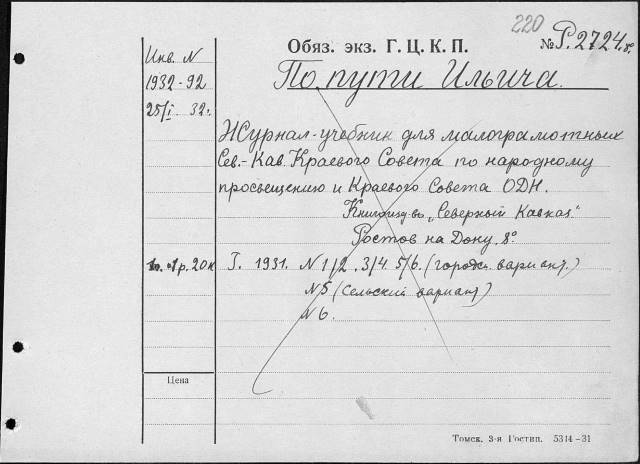 220
Обяз. экз. Г. Ц. К. П.
№ Р. 2724.г.
Инв. N
1932-92
25/I 32г.
По пути Ильича.
Журнал-учебник для малограмотных
Сев.-Кав. Краевого Совета по народному
просвещению и Краевого Совета ОДН.
Книгоизд-во „Северный Кавказ."
Ростов на Дону. 8°
1р. 20к
I. 1931. N 1/2. 3/4. 5/6. (городск. вариант.)
N 5 (Сельский вариант)
N 6.
Цена
Томск. 3-я Гостип. 5314-31